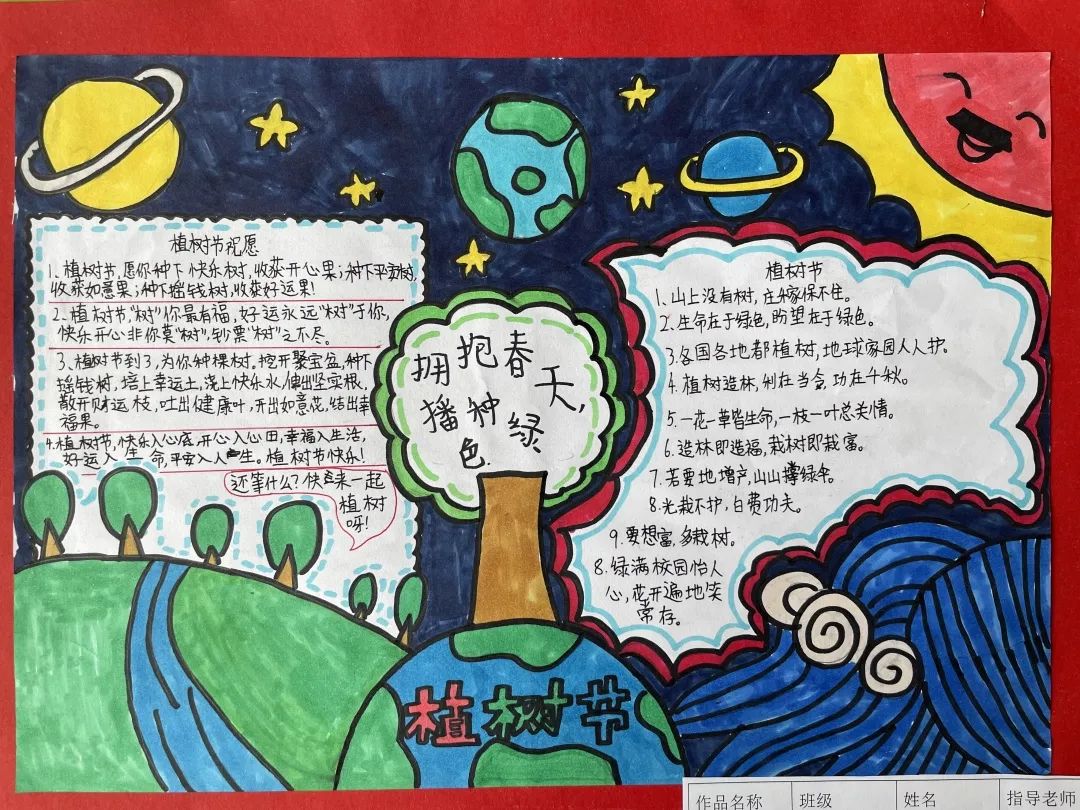 植树节祝愿
1、植树节,愿你种下快乐树,收获开心果;种下平安树,
收获如意果;种下摇钱树,收获好运果!
2、植树节,"树"你最有福,好运永远"树"于你,
快乐开心非你莫"树",钞票"树"之不尽。
3、植树节到了,为你种棵树,挖开聚宝盆,种下
摇钱树,培上幸运土,浇上快乐水,伸出坚实根,
散开财运枝,吐出健康叶,开出如意花,结出幸
福果。
4.植树节,快乐入心底,开心入心田,幸福入生活,
好运入生命,平安入人生。植树节快乐!
还等什么?快来一起
植树
呀!
拥抱春天,
播种绿
色.
植树节
1、山上没有树,庄稼保不住。
2.生命在于绿色,盼望在于绿色。
3.各国各地都植树,地球家园人人护。
4.植树造林,利在当令,功在千秋。
5.一花一草皆生命,一枝一叶总关情。
6.造林即造福,栽树即栽富。
7.若要地增产,山山撑绿伞。
8.光栽不护,白费功夫。
9.要想富,多栽树。
8.绿满校园怡人
心,花开遍地笑
常存。
植树节
作品名称 班级 姓名 指导老师